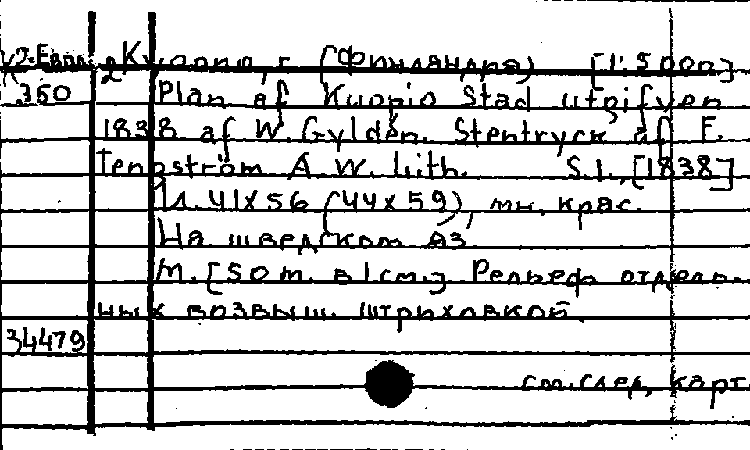 Куопио, г. (Финляндия) [1:5000]
350 Plan af Kuopio Stad utgifven
1838 af W. Gyldén. Stentryck af F.
Tengström A. W. lith. S.l., [1838]
1 л. 41х56 (44х59), мн. крас.
На шведском яз.
М. [50 m. в 1 см.] Рельеф отдель-
ных возвыш. штриховкой.
34479
см. след. карт